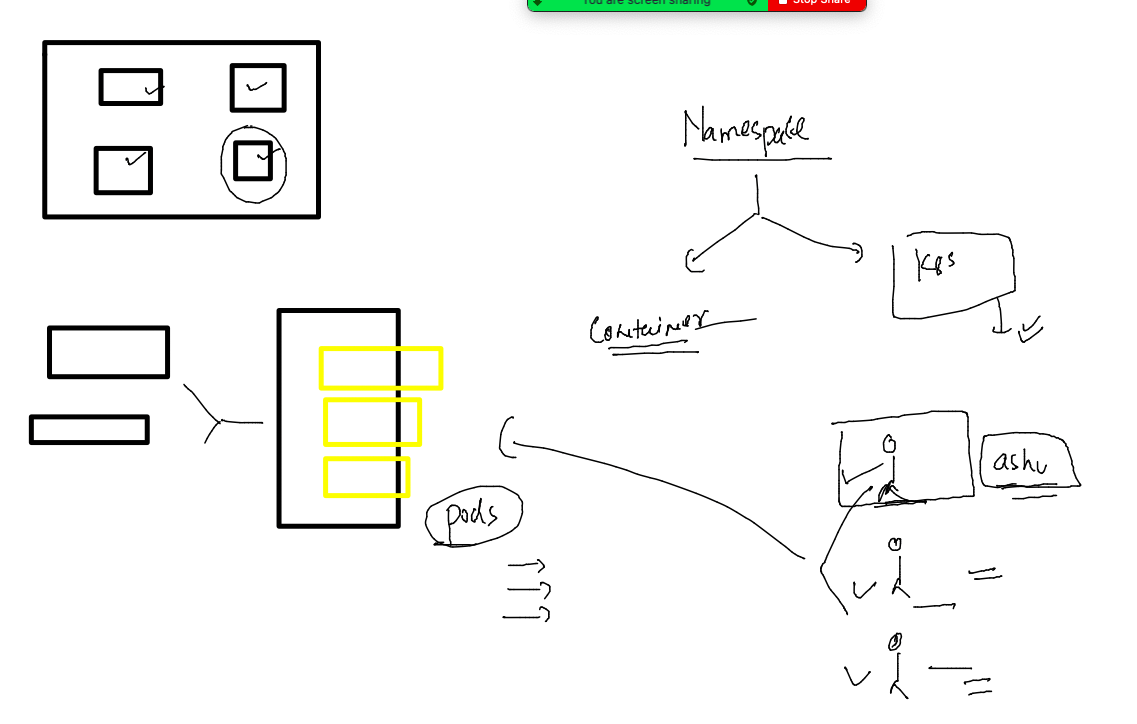 You are screen sharing
Stop Share
Namespace
K8s
Container
ashu
pods